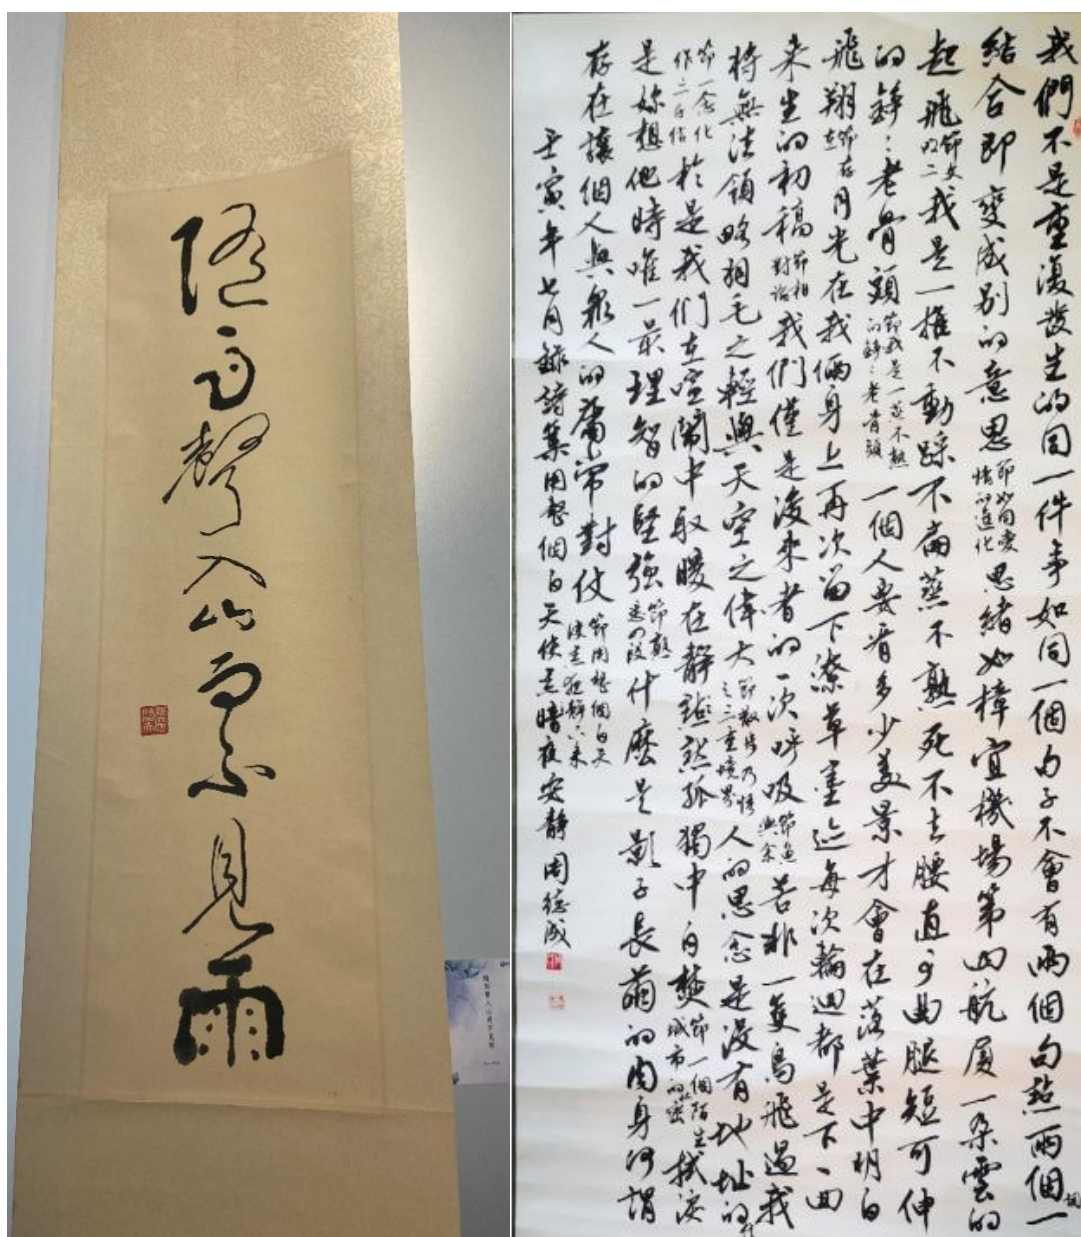 隨雨聲入山而不見雨
我們不是重復發生的同一件事如同一個句子不會有兩個句點兩個一詞
結合即變成別的意思節如同愛情的進化思緒如樟宜機場第四航廈一朵雲的
起飛節之二我是一推不動踩不扁蒸不熟死不去腰直可曲腿短可伸
的錚錚老骨頭節我是一蒸不熟的錚錚老骨頭一個人要看多少美景才會在落葉中明白
飛翔節存在月光在我倆身上再次留下潦草墨迹每次輪迴都是下一回
来生的初稿節相對論我們僅是後來者的一次呼吸節魚與余若非一隻鳥飛過我
將無法領略羽毛之輕與天空之偉大節散步乃悟之三重境界人的思念是沒有地址的
節一念化作二千於是我们在喧鬧中取暖在靜默孤獨中自焚節一個陌生城市的密拭淚
是妳想他時唯一最理智的堅強節四段什麼是影子長繭的肉身何謂
存在讓個人與眾人的庸常對仗節用整個白天使
壬寅年七月錄詩集用整個白天使黑暗夜安靜周德成